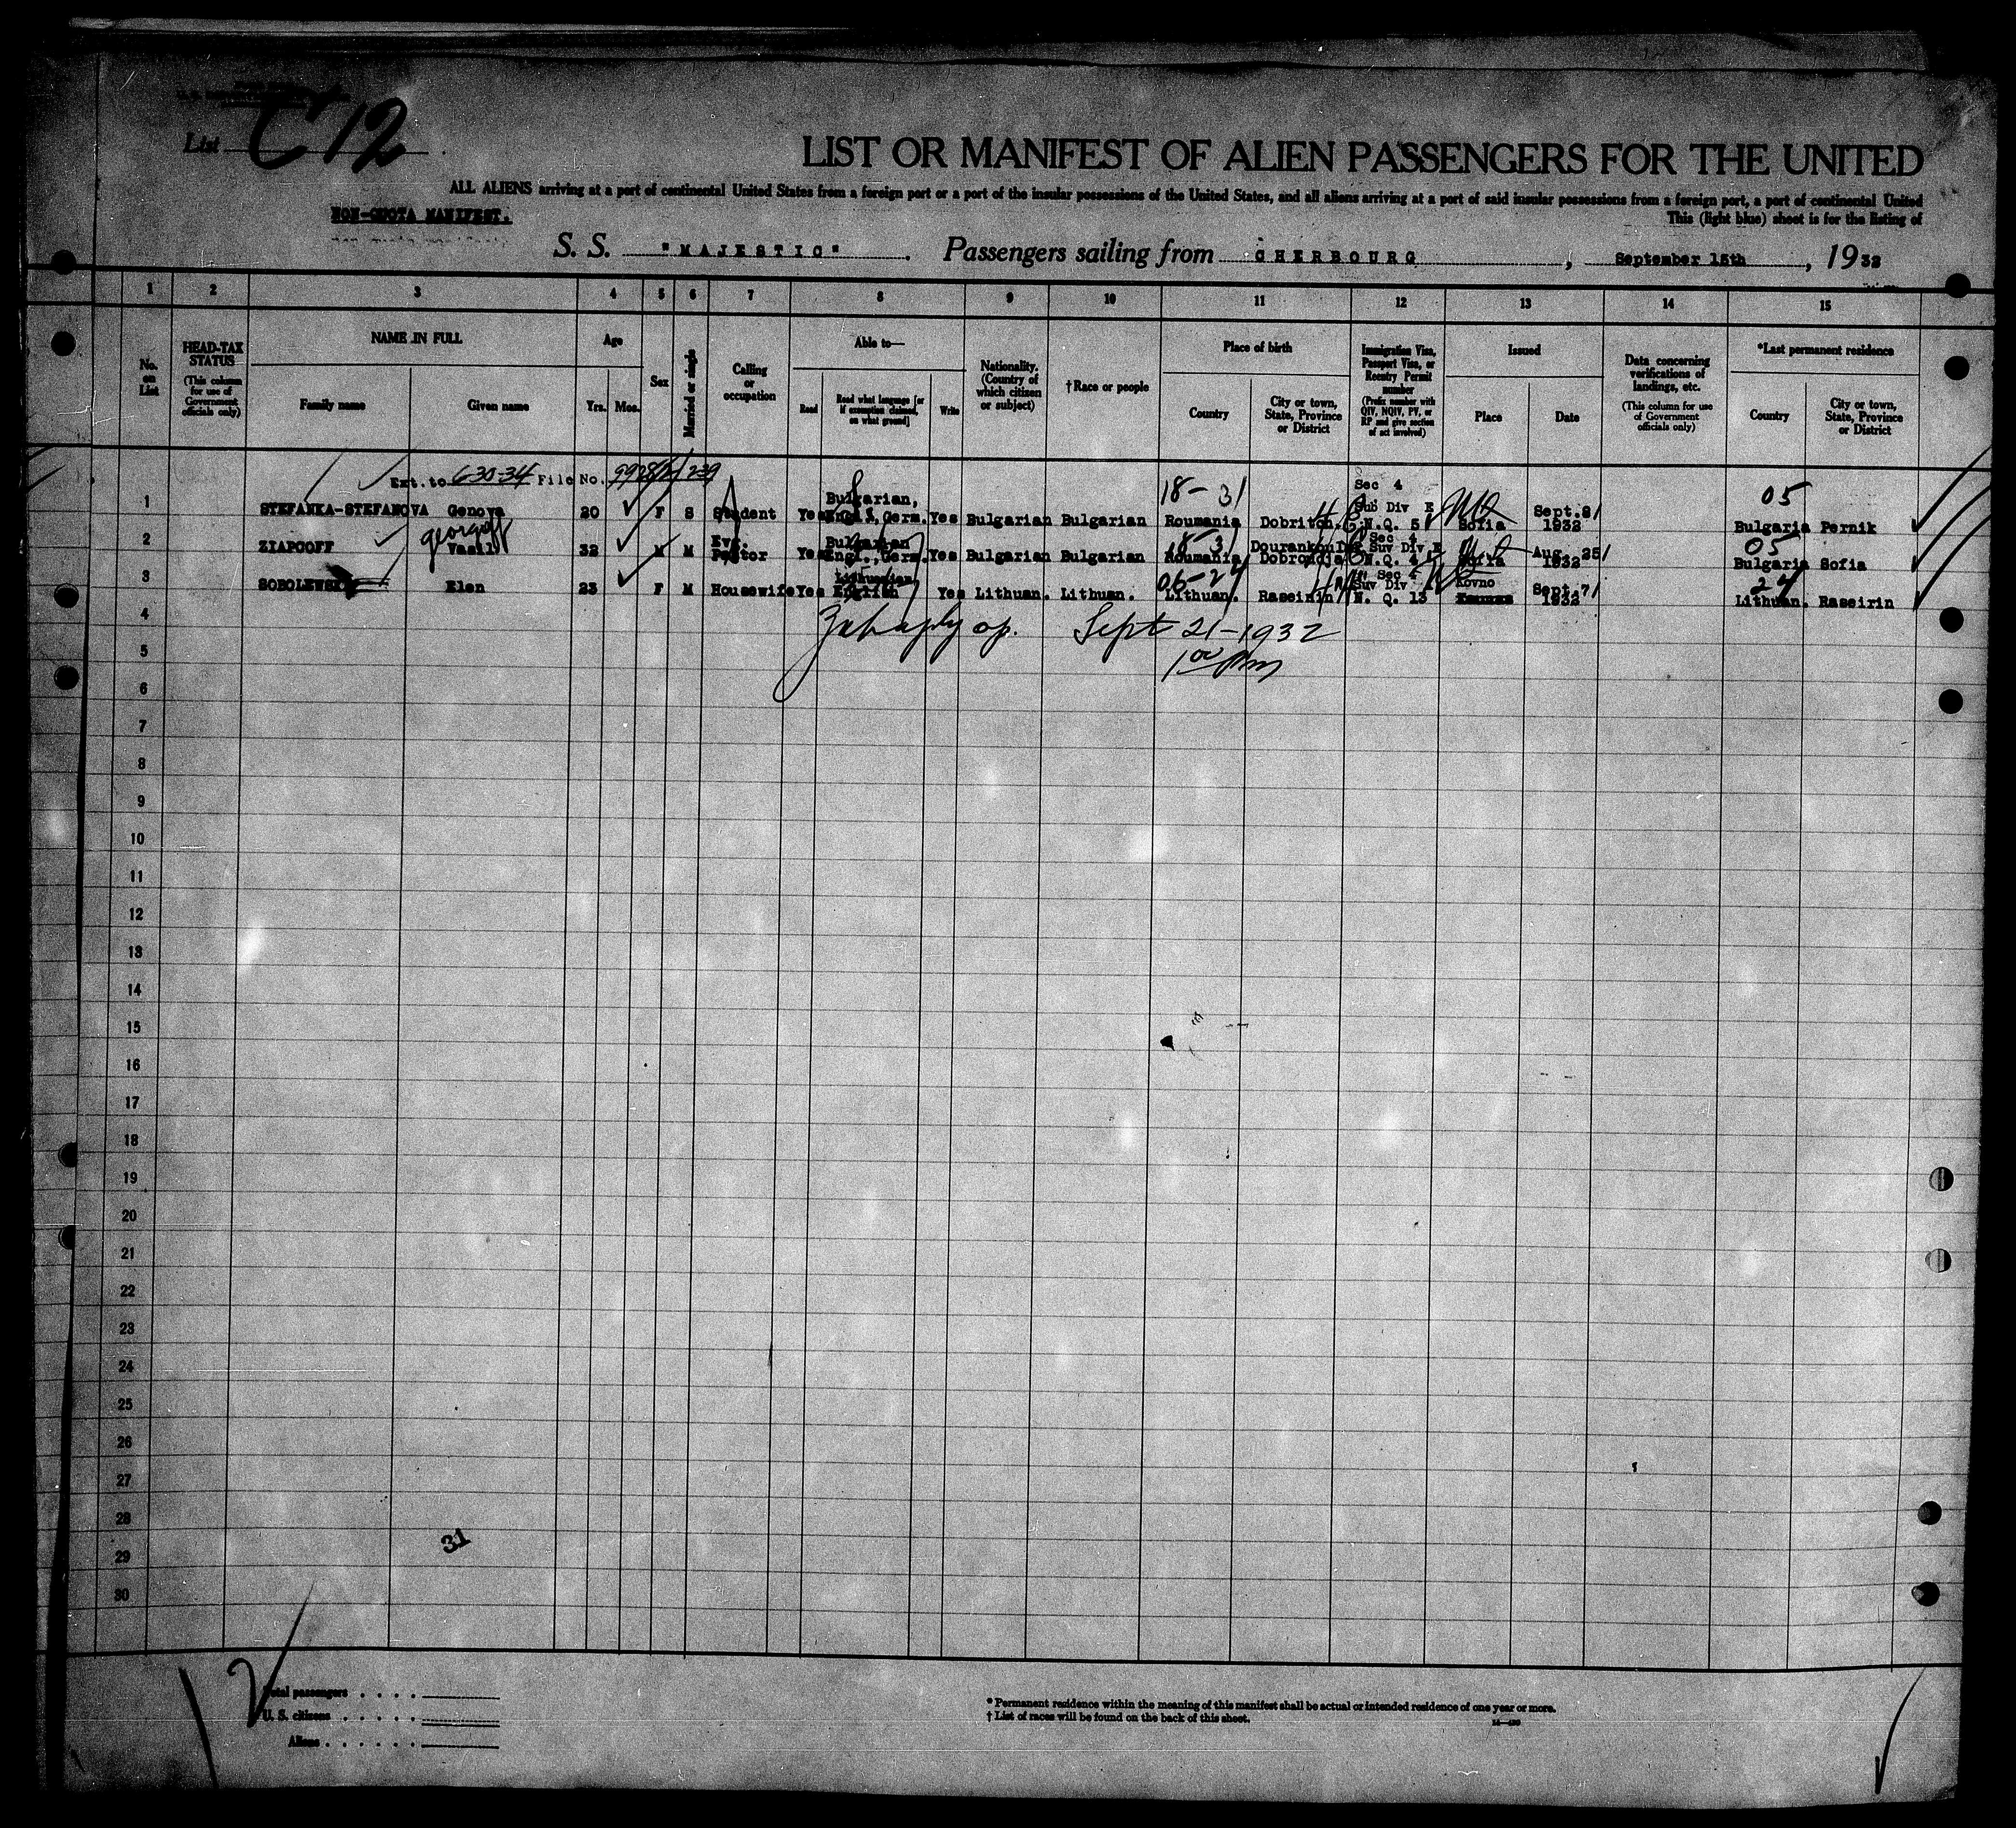 List C 12
LIST OR MANIFEST OF ALIEN PASSENGERS FOR THE UNITED
ALL ALIENS arriving at a port of continental United States from a foreign port or a port of the insular possessions of the United States, and all aliens arriving at a port of said insular possessions from a foreign port, a port of continental United
NON-QUOTA MANIFEST.
This (light blue) sheet is for the listing of
S. S. "MAJESTIC". Passengers sailing from CHERBOURG, September 15th, 1932
1 2 3 4 5 6 7 8 9 10 11 12 13 14 15
No. on List
HEAD-TAX STATUS
(This column for use of Government officials only)
NAME IN FULL
Family name
Given name
Age
Yrs. Mos.
Sex
Married or single
Calling or occupation
Able to—
Read
Read what language [or if exemption claimed, on what ground]
Write
Nationality. (Country of which citizen or subject)
†Race or people
Place of birth
Country
City or town, State, Province or District
Immigration Visa, Passport Visa, or Reentry Permit number
(Prefix number with QIV, NQIV, PV, or RP and give section of act involved)
Issued
Place
Date
Data concerning verifications of landings, etc.
(This column for use of Government officials only)
*Last permanent residence
Country
City or town, State, Province or District
Ext. to 6-30-34 File No.
18-31
Sec 4
05
1 STEFANKA-STEFANOVA Genova 20 F S Student Yes Bulgarian, Engl., Germ. Yes Bulgarian Bulgarian Roumania Sub Div E N.Q. 5 Sofia Sept.8/ 1932 Bulgaria Pernik
Georgoff
18-31
05
2 ZIAPGOFF Vasil 32 M M Evg. Pastor Yes Bulgarian Engl., Germ. Yes Bulgarian Bulgarian Roumania Sec 4 Suv Div N.Q. 4 Sofia Aug 25/ 1932 Bulgaria Sofia
06-24
24
3 Elen 23 F M Housewife Yes Lithuanian English Yes Lithuan. Lithuan. Lithuan. Raseirin Sec 4 Suv Div N. Q. 13 Kovno Sept.7/ 1932 Lithuan. Raseirin
4
Sept 21-1932
5
1 00 pm
6
7
8
9
10
11
12
13
14
15
16
17
18
19
20
21
22
23
24
25
26
27
28
31
29
30
Total passengers
U. S. citizens
Aliens
* Permanent residence within the meaning of this manifest shall be actual or intended residence of one year or more.
† List of races will be found on the back of this sheet.